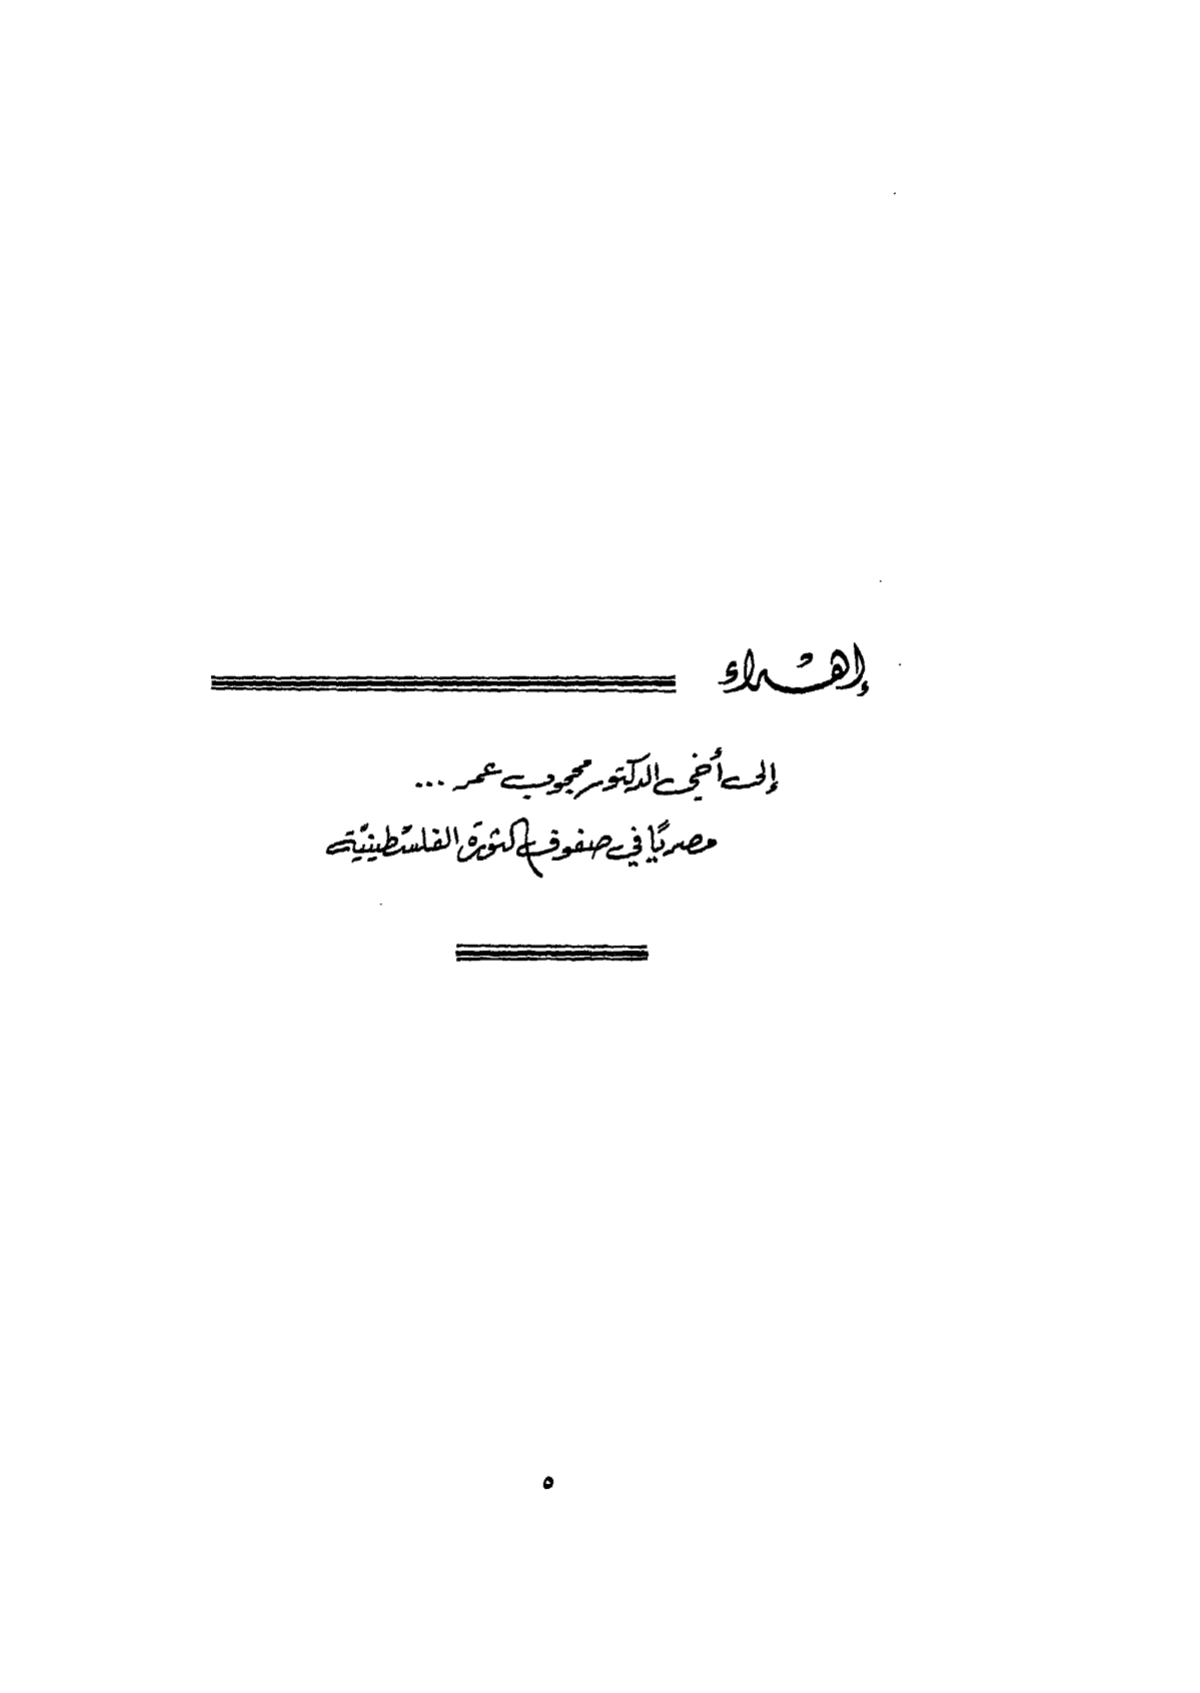 إهداء
إلى أخي الدكتور محجوب عمر ...
مصريًا في صفوف الثورة الفلسطينية
٥